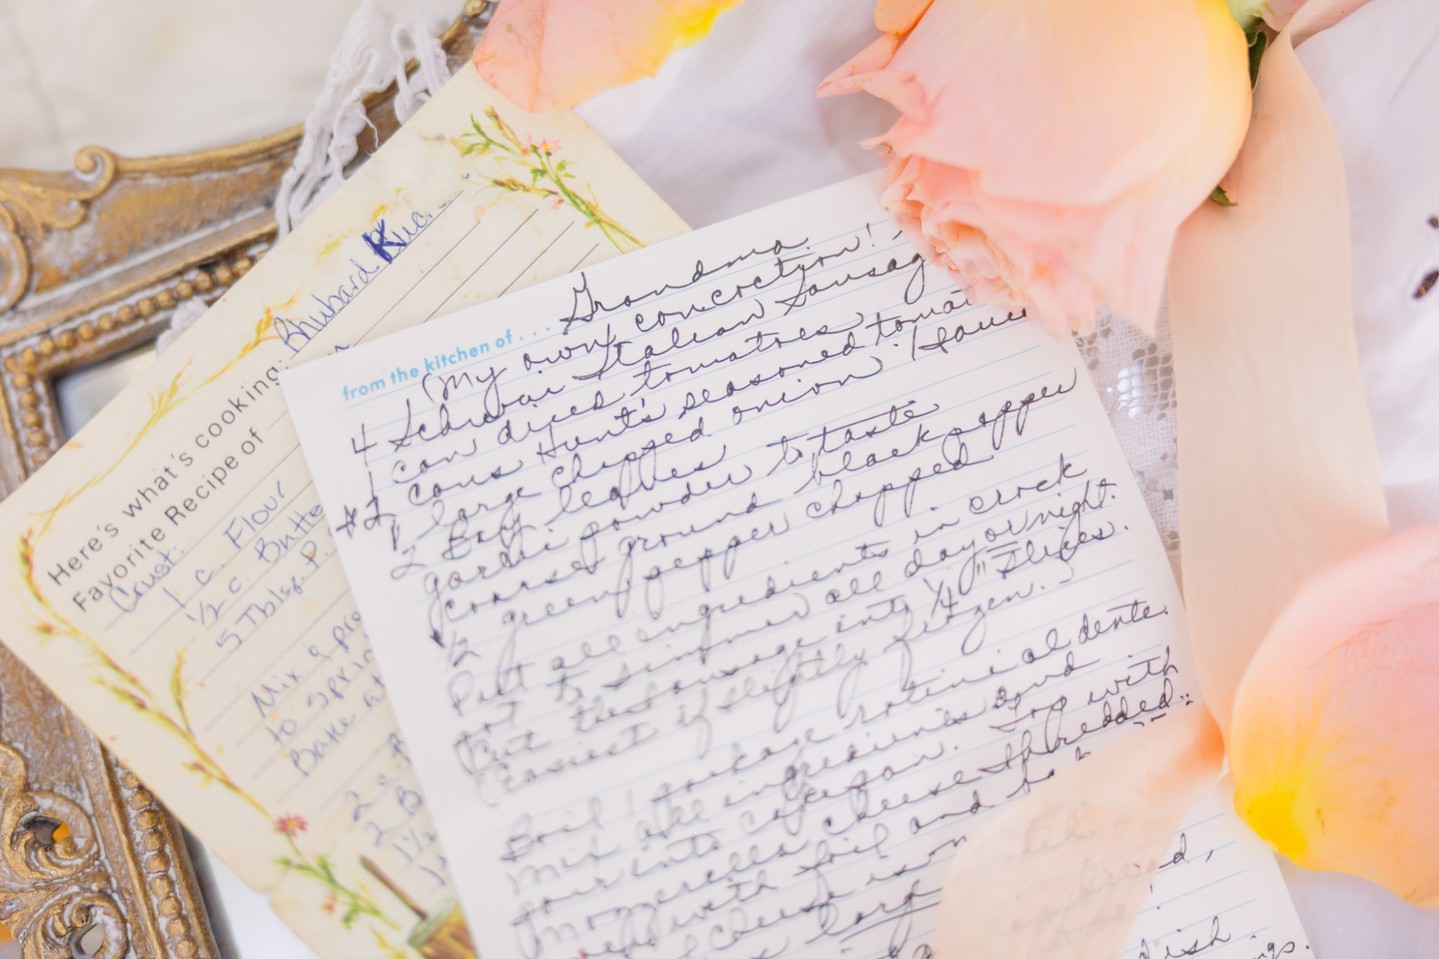 Here's what's cooking: Rhubard Kuc
Favorite Recipe of
Crust.
1 c. Flour
1/2 c. Butte
5 Tbls. P.
Mix & pre
to spri
Bake at
2
2 B
1 1/2
from the kitchen of... Grandma
(My own concoction!
4 Italian Sausag
1 can diced tomatoes
*2 cans Hunt's seasoned tomat
1 large chopped onion Sauce
2 Bay leaves
garlic powder to taste
coarse ground black pepper
1/2 green pepper chopped
Put all ingredients in crock
pot to simmer all day or night.
Cut the sausage into 1/4" slices.
(Easiest if slightly frozen.)
Boil 1 package rotini al dente.
Mix all ingredients and
pour into casserole. Top with
Mozzerella cheese shredded.
with foil and
cheese is
large
dish